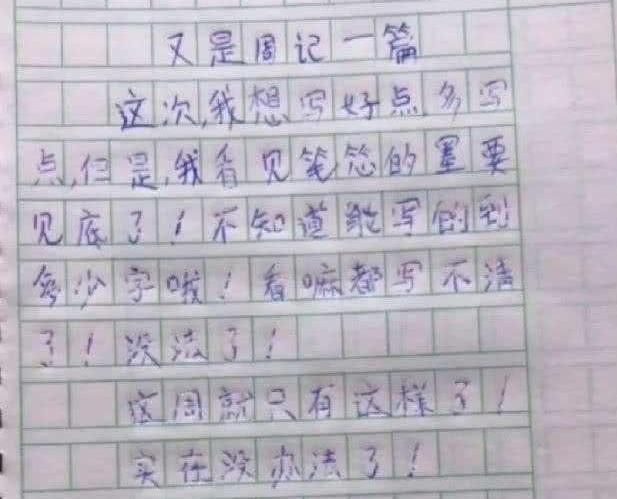 又是周记一篇
这次,我想写好点,多写
点,但是,我看见笔芯的墨要
见底了!不知道能写的到
多少字哦!看嘛都写不清
了!没法了!
这周就只有这样了!
实在没办法了!